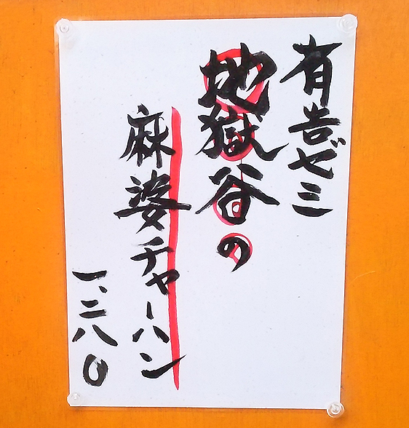 有吉ゼミ
地獄谷の
麻婆チャーハン
一、三八〇